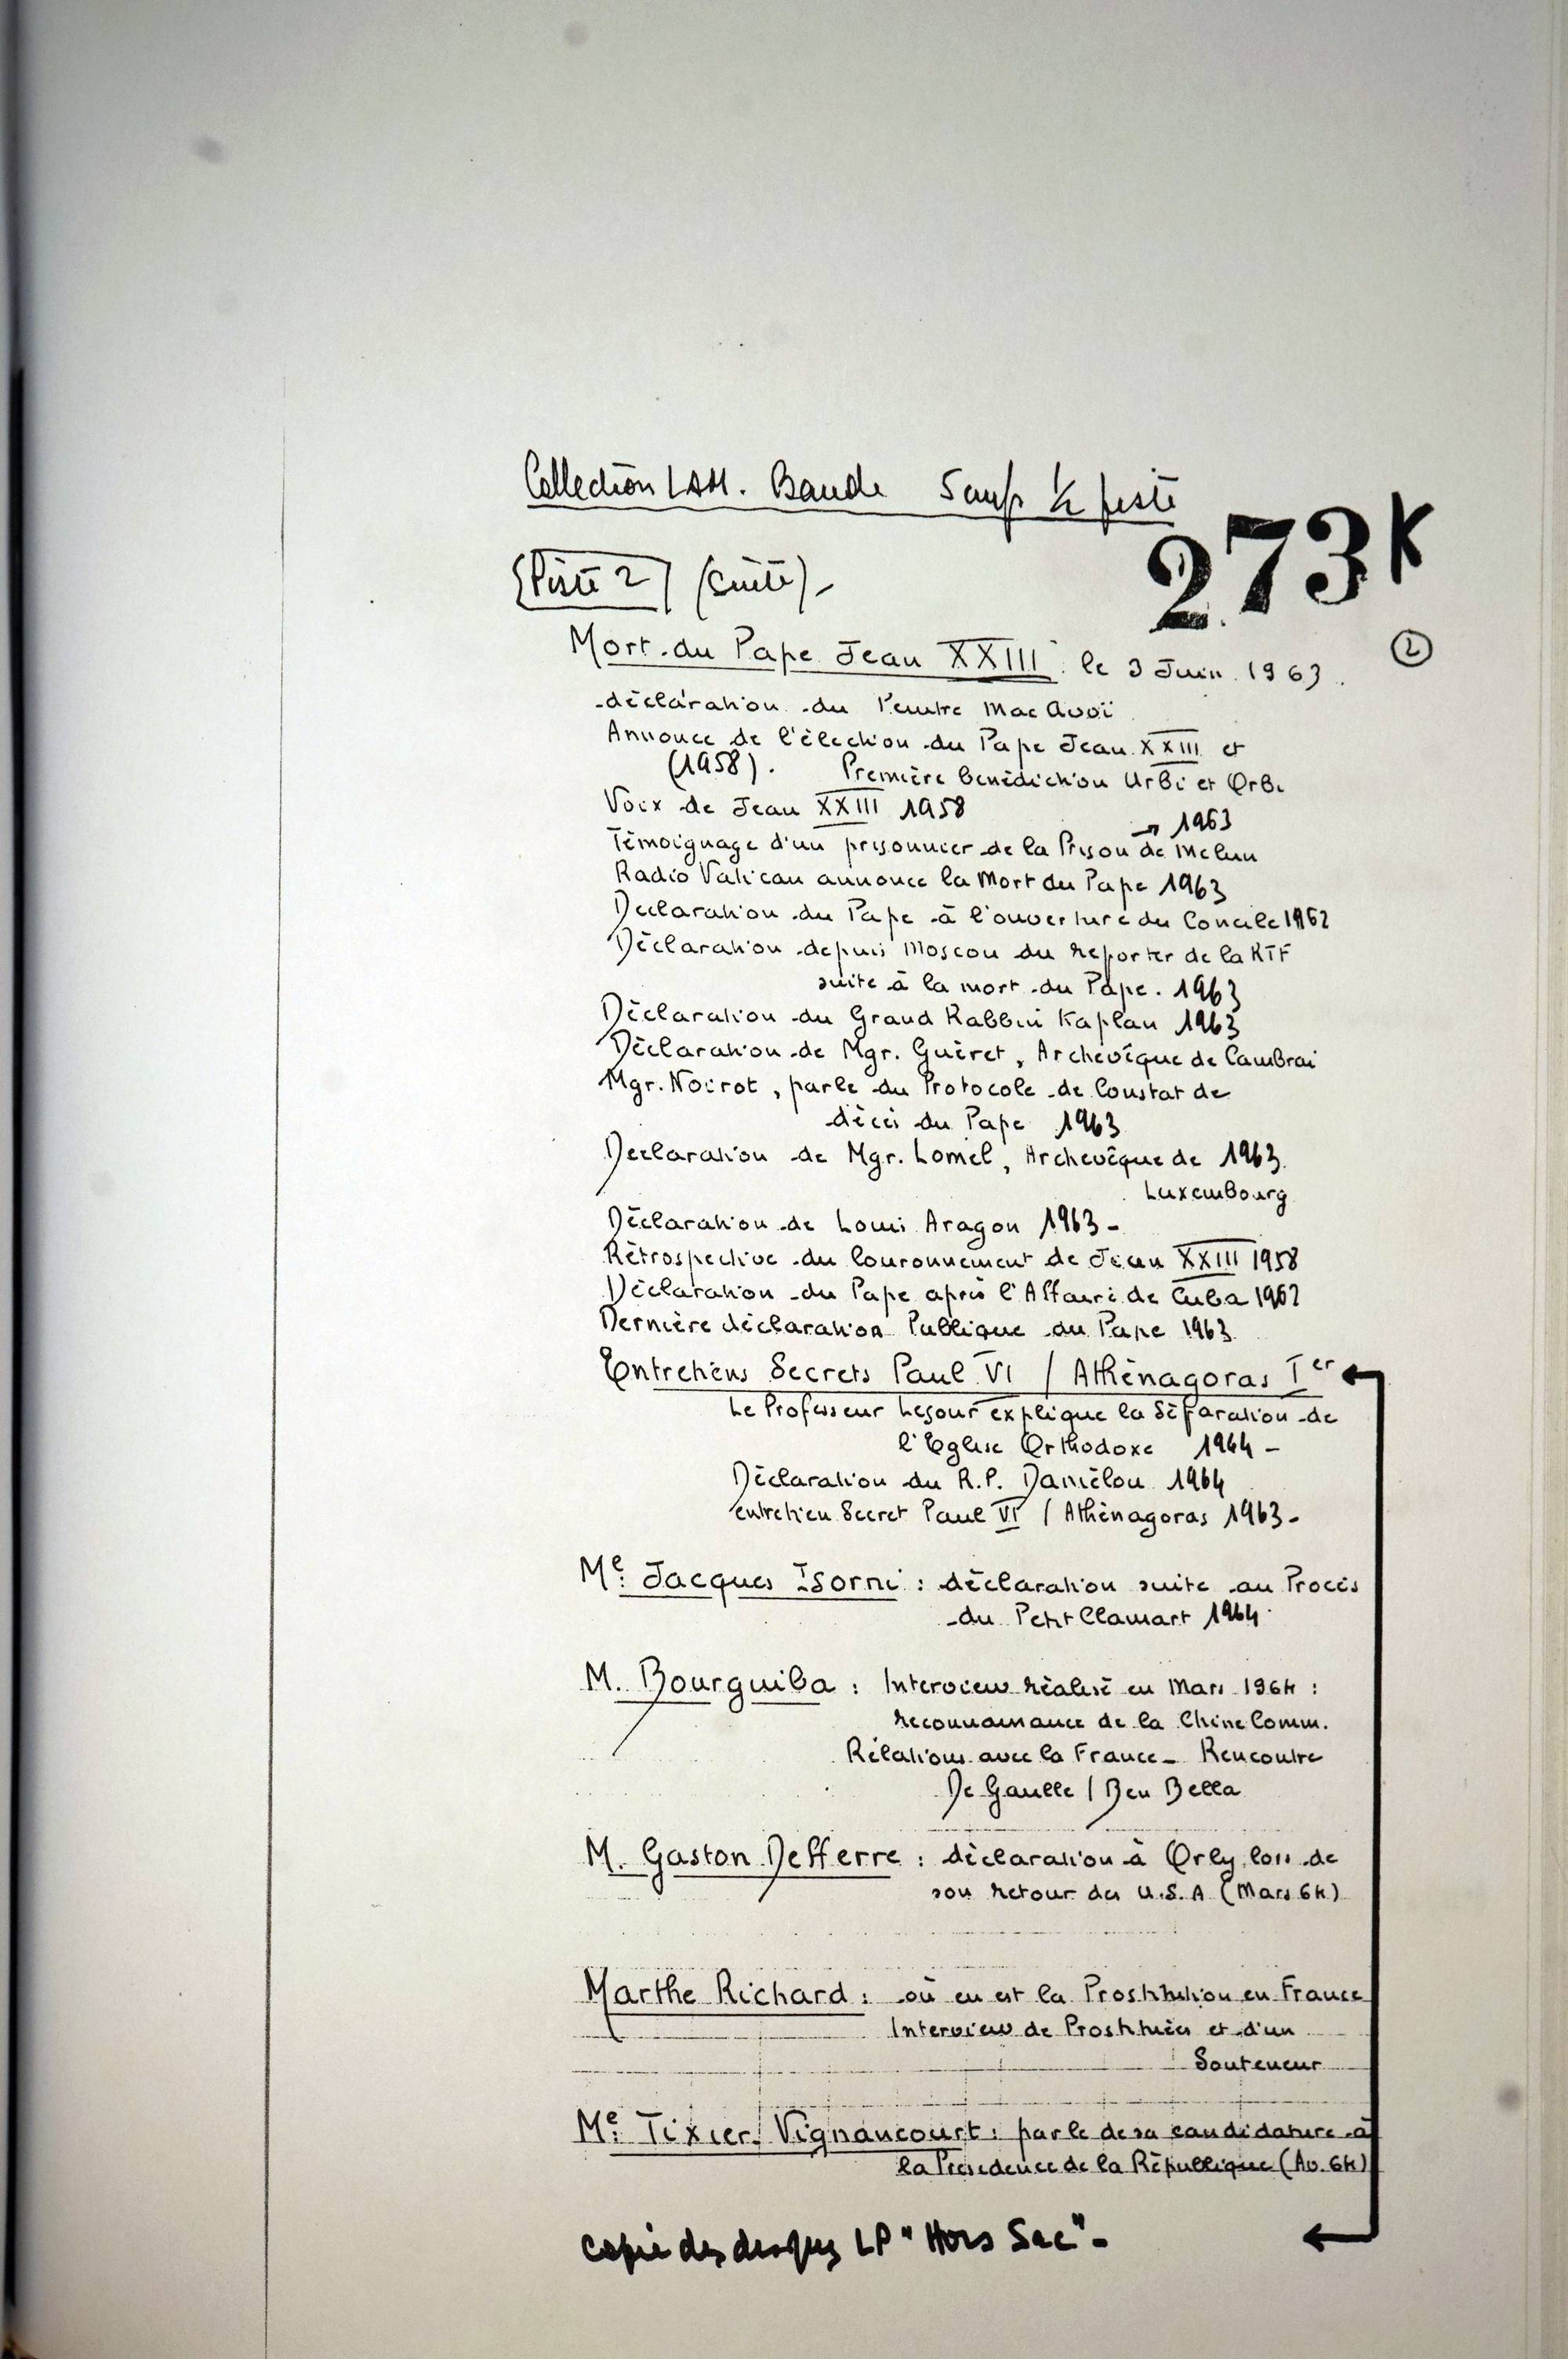 Collection LAM. Bande 5 cm/s ½ piste
273K
Piste 2 (suite).
2
Mort du Pape Jean XXIII le 3 Juin 1963.
déclaration du Peintre Mac Avoï
Annonce de l'élection du Pape Jean XXIII et
(1958). Première benédiction Urbi et Orbi
Voix de Jean XXIII 1958
→ 1963
Témoignage d'un prisonnier de la Prison de Melun
Radio Vatican annonce la Mort du Pape 1963
Declaration du Pape à l'ouverture du Concile 1962
Déclaration depuis Moscou du reporter de la RTF
suite à la mort du Pape. 1963
Déclaration du Grand Rabbin Kaplan 1963
Déclaration de Mgr. Guéret, Archevêque de Cambrai
Mgr. Noirot, parle du Protocole de Constat de
décès du Pape 1963
Declaration de Mgr. Lomel, Archevêque de 1963
Luxembourg
Déclaration de Louis Aragon 1963 -
Rétrospective du Couronnement de Jean XXIII 1958
Déclaration du Pape après l'Affaire de Cuba 1962
Dernière déclaration Publique du Pape 1963
Entretiens Secrets Paul VI / Athénagoras Ier
Le Professeur Lesour explique la Séparation de
l'Eglise Orthodoxe 1964 -
Déclaration du R.P. Daniélou 1964
entretien Secret Paul VI / Athénagoras 1963 -
Me: Jacques Isorni : déclaration suite au Procès
du Petit Clamart 1964
M. Bourguiba : Interview réalisé en Mars 1964 :
reconnaissance de la Chine Comm.
Rélations avec la France - Rencontre
De Gaulle / Ben Bella
M. Gaston Defferre : déclaration à Orly, lors de
son retour des U.S.A (Mars 64)
Marthe Richard : où en est la Prostitution en France
Interview de Prostituées et d'un
Souteneur
Me: Tixier Vignancourt : parle de sa candidature à
la Présidence de la République (Av. 64)
copie des disques LP "Hors Sac" -